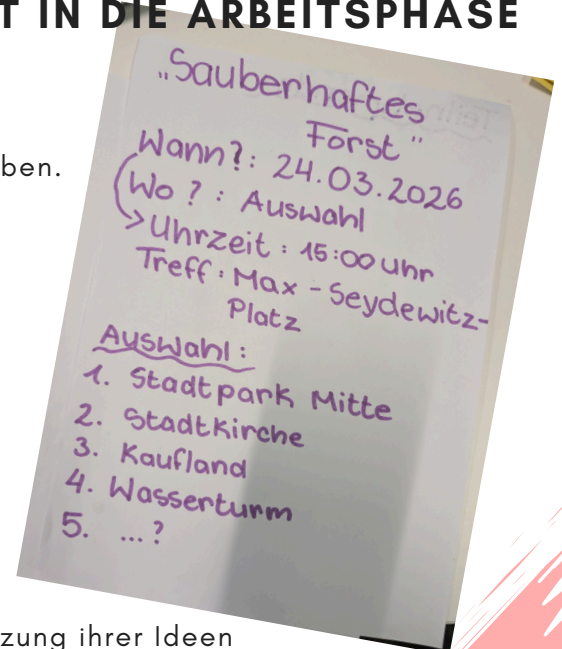 T IN DIE ARBEITSPHASE
ben.
„Sauberhaftes
Forst"
Wann?: 24.03.2026
Wo?: Auswahl
Uhrzeit: 15:00 Uhr
Treff: Max-Seydewitz-
Platz
Auswahl:
1. Stadtpark Mitte
2. Stadtkirche
3. Kaufland
4. Wasserturm
5. ...?
zung ihrer Ideen